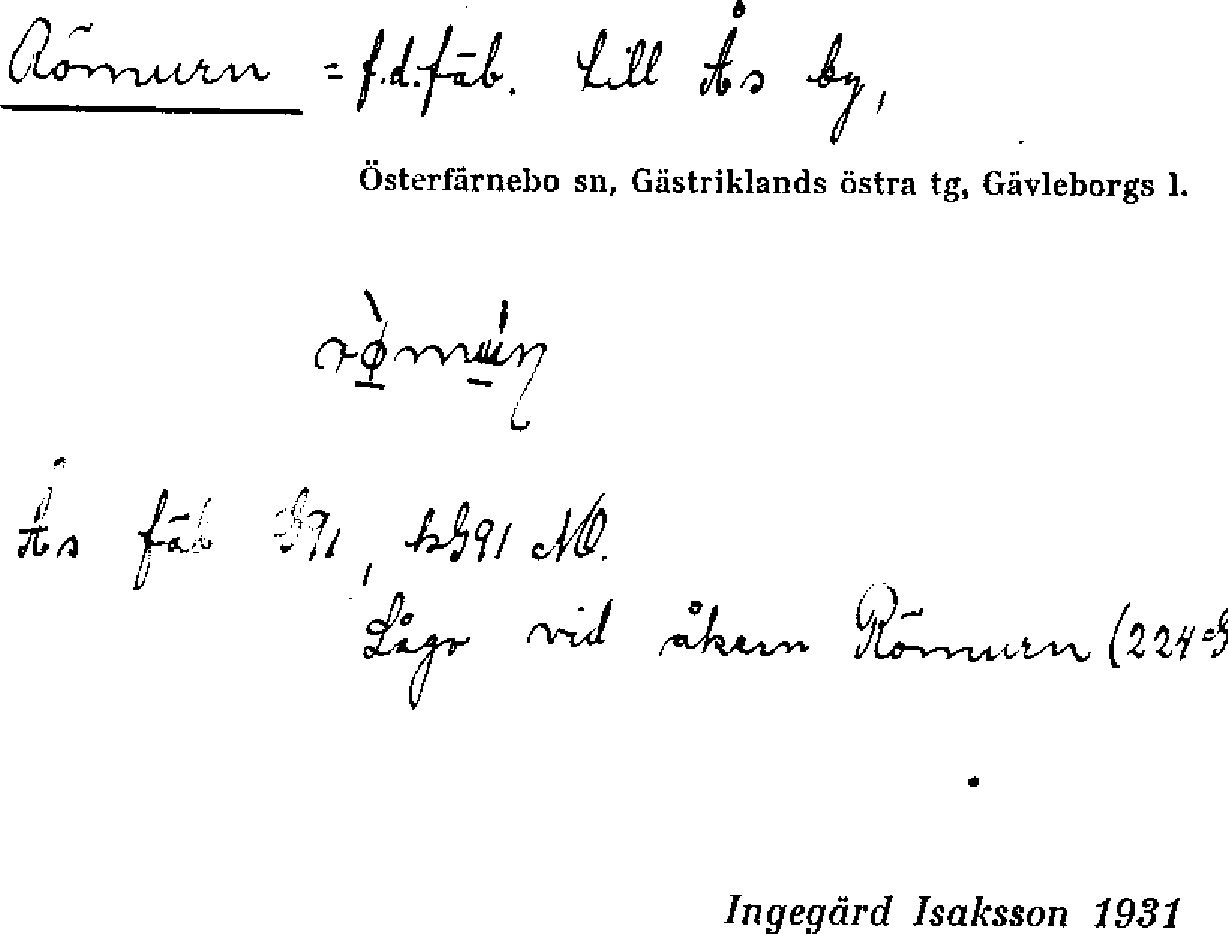 Römurn = f.d. fäb. till Ås by,
Österfärnebo sn, Gästriklands östra tg, Gävleborgs l.
Ås fäb G91, hG91 NO.
Lågo vid åkern Römurn (224=G
Ingegärd Isaksson 1931